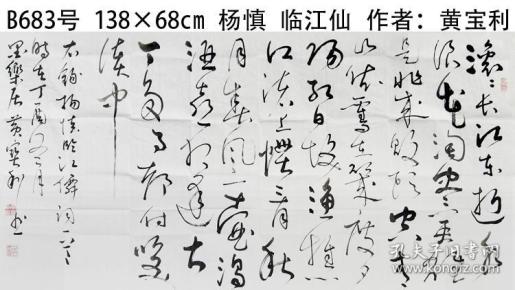 B683号 138×68cm 杨慎 临江仙 作者：黄宝利
滚滚长江东逝水
浪花淘尽英雄
是非成败转头空青
山依旧在几度夕
阳红白发渔樵
江渚上惯看秋
月春风一壶浊
酒喜相逢古
今多少事都付笑
谈中
右录杨慎临江仙词一首
时在丁酉冬月
墨乐居黄宝利书
孔夫子旧书网